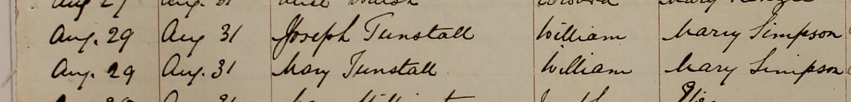 Aug. 29 Aug 31 Joseph Tunstall William Mary Simpson
Aug. 29 Aug. 31 Mary Tunstall William Mary Simpson